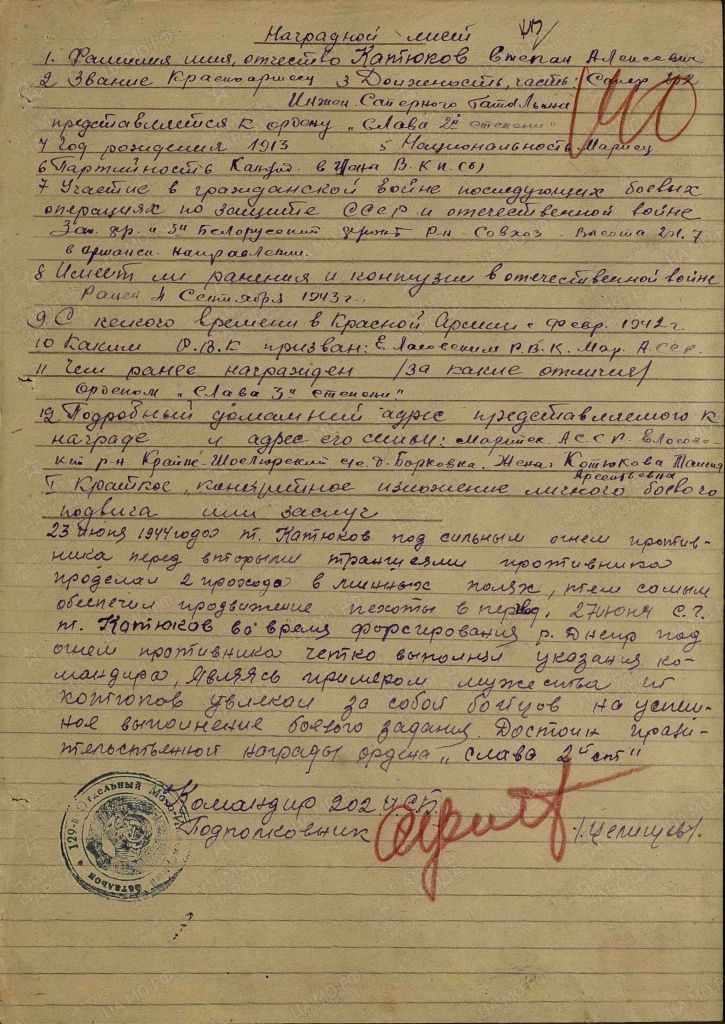 Наградной лист
1. Фамилия имя, отчество Катюков Степан Алексеевич
2 Звание Красноармеец 3 Должность, часть: Сапер 202
Инжен. Саперного батальона
представляется к ордену „Слава 2й степени"
4 Год рождения 1913 5 Национальность Мариец
6 Партийность Канд. в члена В.К.П.(б)
7 Участие в гражданской войне последующих боевых
операциях по защите СССР и отечественной войне
Зап. фр. и 3й Белорусский фронт р-н Совхоз. Высота
в оршанск. направлении.
8 Имеет ли ранения и контузии в отечественной войне
Ранен 4 Сентября 1943 г.
9 С какого времени в Красной Армии с февр. 1942 г.
10 Каким О.В.К призван: Еласовским Р.В.К. Мар. А.ССР.
11 Чем ранее награжден /за какие отличия/
орденом „Слава 3й степени"
12 Подробный домашний адрес представляемого к
награде и адрес его семьи: Марийск. АССР Еласов-
кий р-н д. Барковка. Жена: Котюкова Таисия
Арсентьевна
I Краткое, конкретное изложение личного боевого
подвига или заслуг
23 июня 1944 года т. Катюков под сильным огнем против-
ника перед вторыми траншеями противника
проделал 2 прохода в минных полях, тем самым
обеспечил продвижение пехоты в перед. 27 июня С.Г.
т. Катюков во время форсирования р. Днепр под
огнем противника четко выполнял указания ко-
мандира, являясь примером мужества т.
Котюков увлекал за собой бойцов на успеш-
ное выполнение боевого задания. Достоин прави-
тельственной награды ордена „Слава 2й ст"
Командир 202 И.С.Б.
Подполковник /Челищев/.
129-й Отдельный
батальон